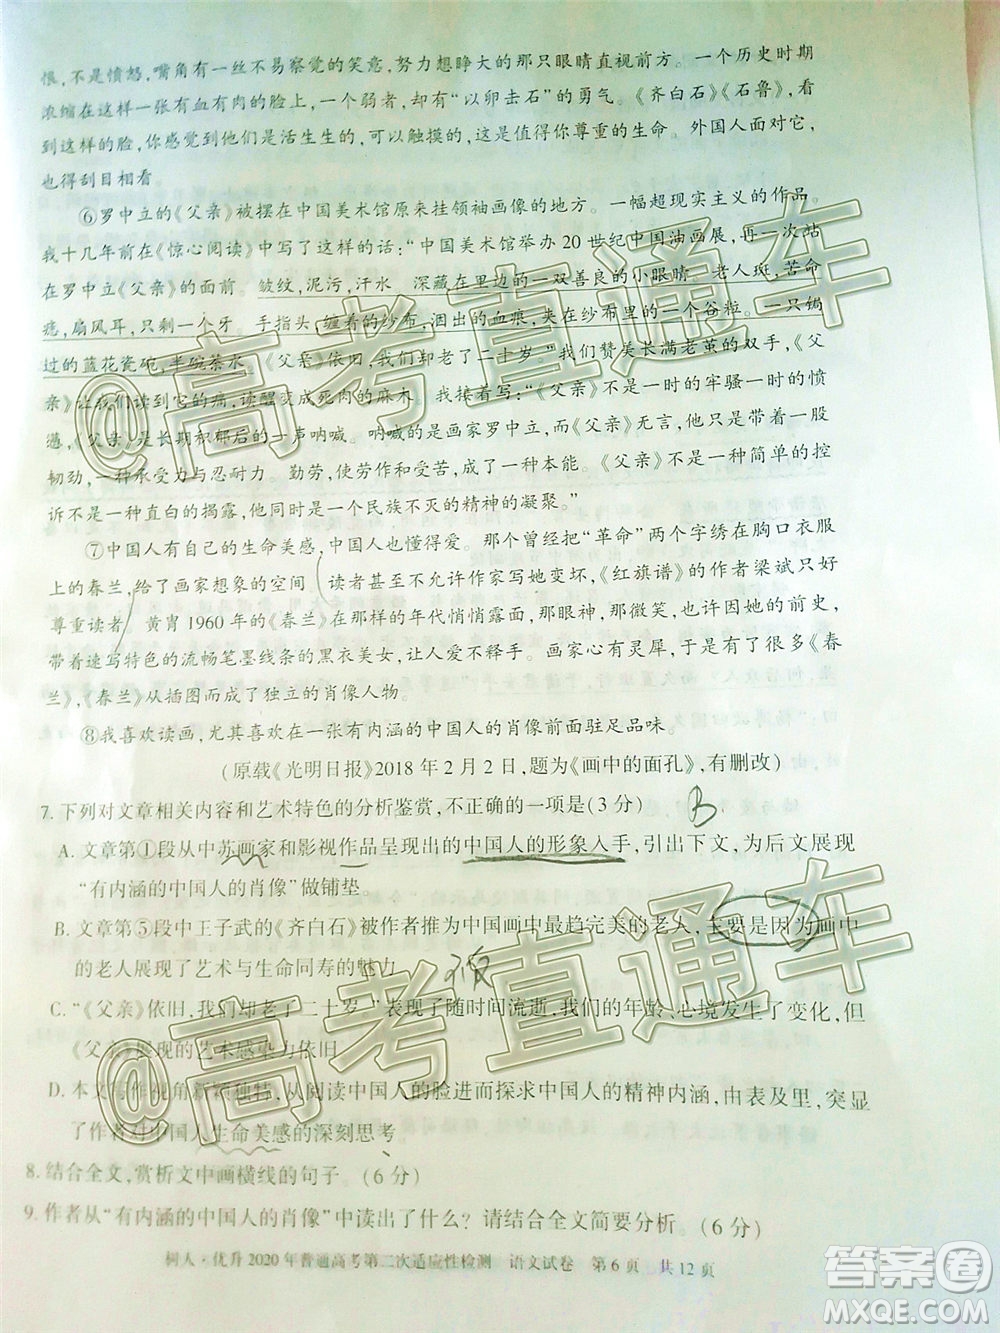 恨,不是愤怒,嘴角有一丝不易察觉的笑意,努力想睁大的那只眼睛直视前方。一个历史时期
浓缩在这样一张有血有肉的脸上,一个弱者,却有“以卵击石”的勇气。《齐白石》《石鲁》,看
到这样的脸,你觉得他们是活生生的,可以触摸的,这是值得你尊重的生命。外国人面对它,
也得刮目相看。
⑥罗中立的《父亲》被摆在中国美术馆原来挂领袖画像的地方。一幅超现实主义的作品。
我十几年前在《惊心阅读》中写了这样的话:“中国美术馆举办20世纪中国油画展,再一次站
在罗中立《父亲》的面前。皱纹,泥污,汗水。深藏在里边的一双善良的小眼睛。老人斑,苦命
痣,扇风耳,只剩一个牙。手指头,缠着的纱布,洇出的血痕,夹在纱布里面的一个谷粒。一只锔
过的蓝花瓷碗,半碗茶水。《父亲》依旧,我们却老了二十岁。”我们赞美长满老茧的双手,《父
亲》让我们读到它的痛,读醒变成死肉的麻木。我接着写:“《父亲》不是一时的牢骚一时的愤
懑,《父亲》是长期积郁后的一声呐喊。呐喊的是画家罗中立,而《父亲》无言,他只是带着一股
韧劲,一种承受力与忍耐力。勤劳,使劳作简直成了一种本能。《父亲》不是一种简单的控
诉不是一种直白的揭露,他同时是一个民族不灭的精神的凝聚。”
⑦中国人有自己的生命美感,中国人也懂得爱。那个曾经把“革命”两个字绣在胸口衣服
上的春兰,给了画家想象的空间。读者甚至不允许作家写她变坏,《红旗谱》的作者梁斌只好
尊重读者。黄胄1960年的《春兰》在那样的年代悄悄露面,那眼神,那微笑,也许因她的史,
带着速写特色的流畅笔墨线条的黑衣美女,让人爱不释手。画家心有灵犀,画了很多《春
兰》,《春兰》从插图而成了独立的肖像人物。
⑧我喜欢读画,尤其喜欢在一张有内涵的中国人的肖像前面驻足品味。
(原载《光明日报》2018年2月2日,题为《画中的面孔》,有删改)
7.下列对文章相关内容和艺术特色的分析鉴赏,不正确的一项是(3分) B
A.文章第①段从中苏画家和影视作品呈现出的中国人的形象入手,引出下文,为后文展现
“有内涵的中国人的肖像”做铺垫。
B.文章第⑤段中王子武的《齐白石》被作者推为中国画中最趋完美的老人,主要是因为画中
的老人展现了艺术与生命同寿的魅力
C.“《父亲》依旧,我们却老了二十岁。”表现了随时间流逝,我们的年龄、心境发生了变化,但
《父亲》展现的艺术感染力依旧
D.本文写作视角新颖独特,从阅读中国人的脸进而探求中国人的精神内涵,由表及里,突显
了作者对中国人生命美感的深刻思考。
8.结合全文,赏析文中画横线的句子。(6分)
9.作者从“有内涵的中国人的肖像”中读出了什么?请结合全文简要分析。(6分)
树人·优升2020年普通高考第二次适应性检测 语文试卷 第6页 共12页
@高考直通车
@高考直通车
答案圈
MXQE.COM